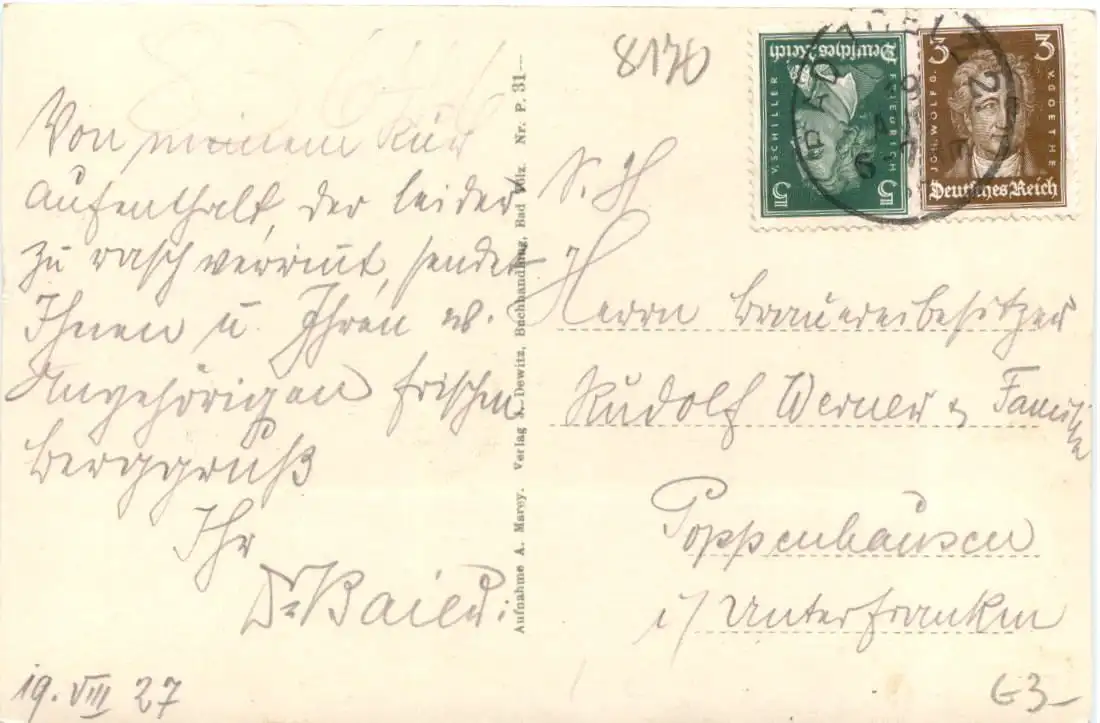 8170
Von meinem Kur
aufenthalt, der leider
zu rasch verrinnt, sendet
Ihnen u. Ihren w.
Angehörigen frischen
Berggruß
Ihr
Dr Baier.
19. VIII 27
Aufnahme A. Marey. Verlag A. Dewitz, Buchhandlung, Bad Tölz. Nr. P. 31
S. H
Herrn Brauereibesitzer
Rudolf Werner & Familie
Poppenhausen
i/ Unterfranken
63-
5 FRIEDRICH V. SCHILLER 5
Deutsches Reich
3 JOH. WOLFG. V. GOETHE 3
Deutsches Reich
BAD TÖLZ